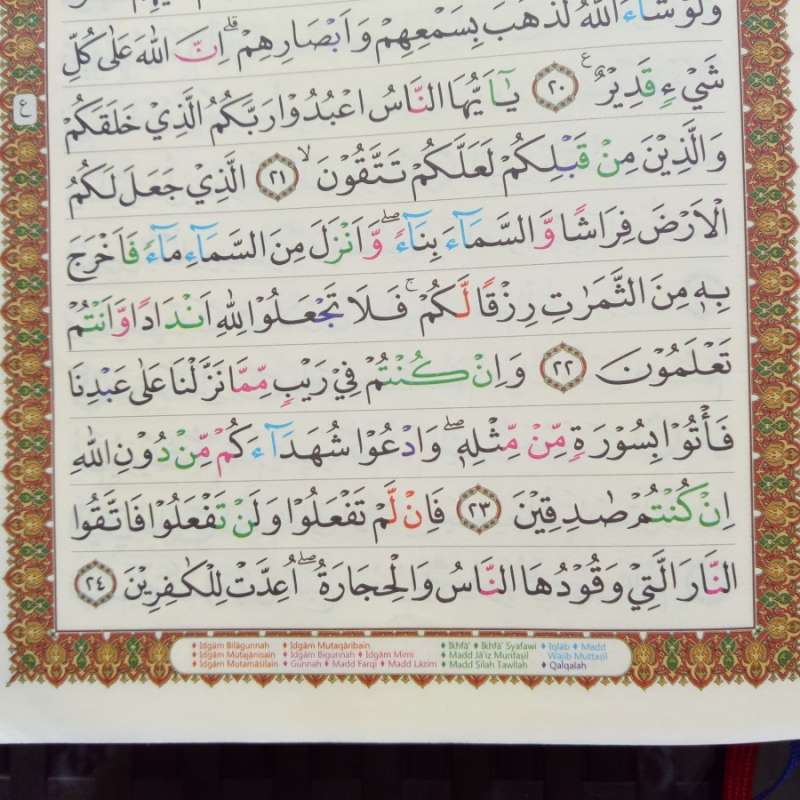 وَلَوْ شَاۤءَ اللّٰهُ لَذَهَبَ بِسَمْعِهِمْ وَاَبْصَارِهِمْ ۗ اِنَّ اللّٰهَ عَلٰى كُلِّ
شَيْءٍ قَدِيْرٌ ࣖ ٢٠ يٰٓاَيُّهَا النَّاسُ اعْبُدُوْا رَبَّكُمُ الَّذِيْ خَلَقَكُمْ
ع
وَالَّذِيْنَ مِنْ قَبْلِكُمْ لَعَلَّكُمْ تَتَّقُوْنَ ۙ ٢١ الَّذِيْ جَعَلَ لَكُمُ
الْاَرْضَ فِرَاشًا وَّالسَّمَاۤءَ بِنَاۤءً ۖ وَّاَنْزَلَ مِنَ السَّمَاۤءِ مَاۤءً فَاَخْرَجَ
بِهٖ مِنَ الثَّمَرٰتِ رِزْقًا لَّكُمْ ۚ فَلَا تَجْعَلُوْا لِلّٰهِ اَنْدَادًا وَّاَنْتُمْ
تَعْلَمُوْنَ ٢٢ وَاِنْ كُنْتُمْ فِيْ رَيْبٍ مِّمَّا نَزَّلْنَا عَلٰى عَبْدِنَا
فَأْتُوْا بِسُوْرَةٍ مِّنْ مِّثْلِهٖ ۖ وَادْعُوْا شُهَدَاۤءَكُمْ مِّنْ دُوْنِ اللّٰهِ
اِنْ كُنْتُمْ صٰدِقِيْنَ ٢٣ فَاِنْ لَّمْ تَفْعَلُوْا وَلَنْ تَفْعَلُوْا فَاتَّقُوا
النَّارَ الَّتِيْ وَقُوْدُهَا النَّاسُ وَالْحِجَارَةُ ۖ اُعِدَّتْ لِلْكٰفِرِيْنَ ٢٤
♦ Idgām Bilāgunnah ♦ Idgām Mutaqāribain ♦ Ikhfā' ♦ Ikhfā' Syafawi ♦ Iqlāb ♦ Madd
♦ Idgām Mutajānisain ♦ Idgām Bigunnah ♦ Idgām Mimi ♦ Madd Jā'iz Munfaṣil Wajib Muttaṣil
♦ Idgām Mutamāṡilain ♦ Gunnah ♦ Madd Farqi ♦ Madd Lāzim ♦ Madd Ṣilah Ṭawīlah ♦ Qalqalah